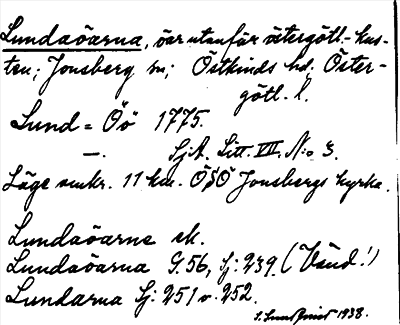 Lundaöarna, öar utanför östergötl. kus-
ten; Jonsberg sn; Östkinds hd; Öster-
götl. l.
Lund = Öö 1775.
—. SjA. Litt. VIII. N:o 3.
Läge omkr. 11 km. ÖSÖ Jonsbergs kyrka.
Lundaöarne ek.
Lundaöarna G.56, Sj: 239 (Vänd!)
Lundarna Sj: 251 o. 252.
1938.